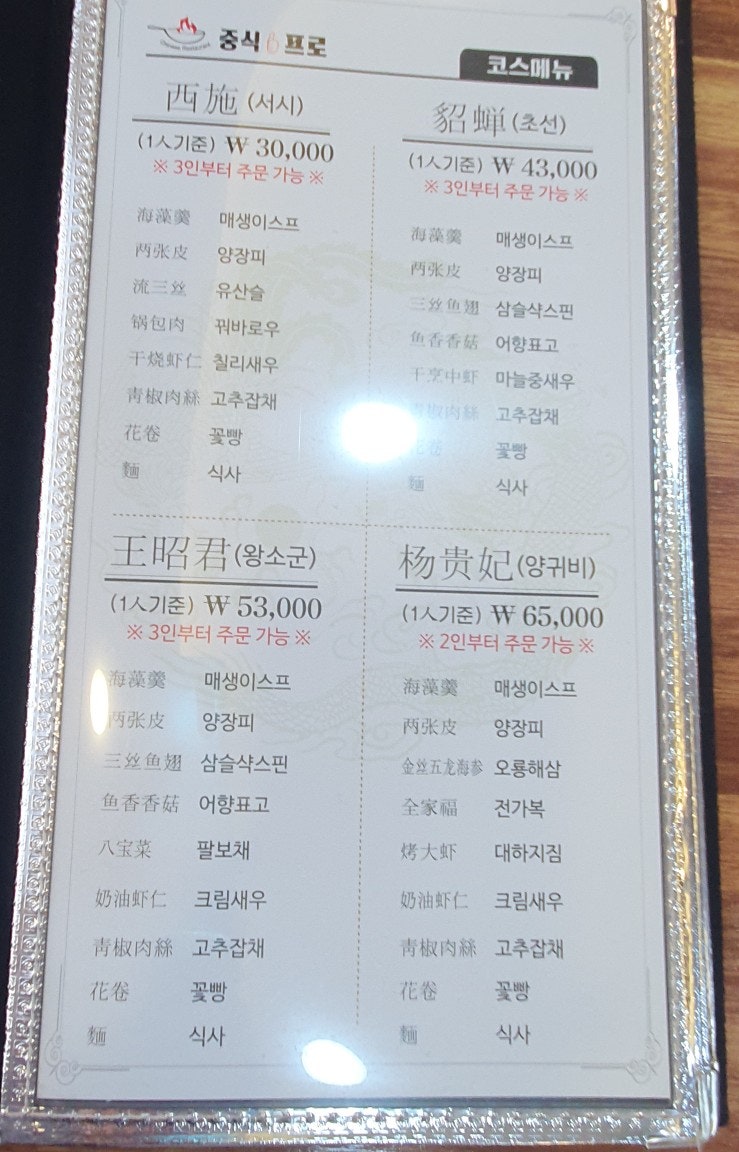 중식 프로
코스메뉴
西施 (서시)
(1人기준) ₩ 30,000
※ 3인부터 주문 가능 ※
海藻羹 매생이스프
两张皮 양장피
流三丝 유산슬
锅包肉 꿔바로우
干烧虾仁 칠리새우
靑椒肉絲 고추잡채
花卷 꽃빵
麵 식사
貂蝉 (초선)
(1人기준) ₩ 43,000
※ 3인부터 주문 가능 ※
海藻羹 매생이스프
两张皮 양장피
三丝鱼翅 삼슬샥스핀
鱼香香菇 어향표고
干烹中虾 마늘중새우
靑椒肉絲 고추잡채
花卷 꽃빵
麵 식사
王昭君 (왕소군)
(1人기준) ₩ 53,000
※ 3인부터 주문 가능 ※
海藻羹 매생이스프
两张皮 양장피
三丝鱼翅 삼슬샥스핀
鱼香香菇 어향표고
八宝菜 팔보채
奶油虾仁 크림새우
靑椒肉絲 고추잡채
花卷 꽃빵
麵 식사
杨贵妃 (양귀비)
(1人기준) ₩ 65,000
※ 2인부터 주문 가능 ※
海藻羹 매생이스프
两张皮 양장피
金丝五龙海参 오룡해삼
全家福 전가복
烤大虾 대하지짐
奶油虾仁 크림새우
靑椒肉絲 고추잡채
花卷 꽃빵
麵 식사